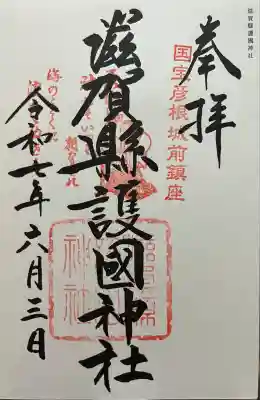 滋賀縣護國神社
奉拝
国宝彦根城前鎮座
滋賀縣護國神社
令和七年六月三日